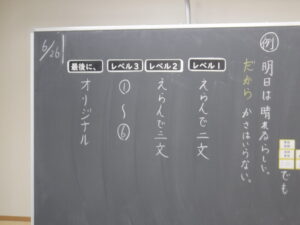 6/26
例
明日は晴れるらしい。
だから かさはいらない。
でも
レベル1
えらんで二文
レベル2
えらんで三文
レベル3
①～⑥
最後に、
オリジナル